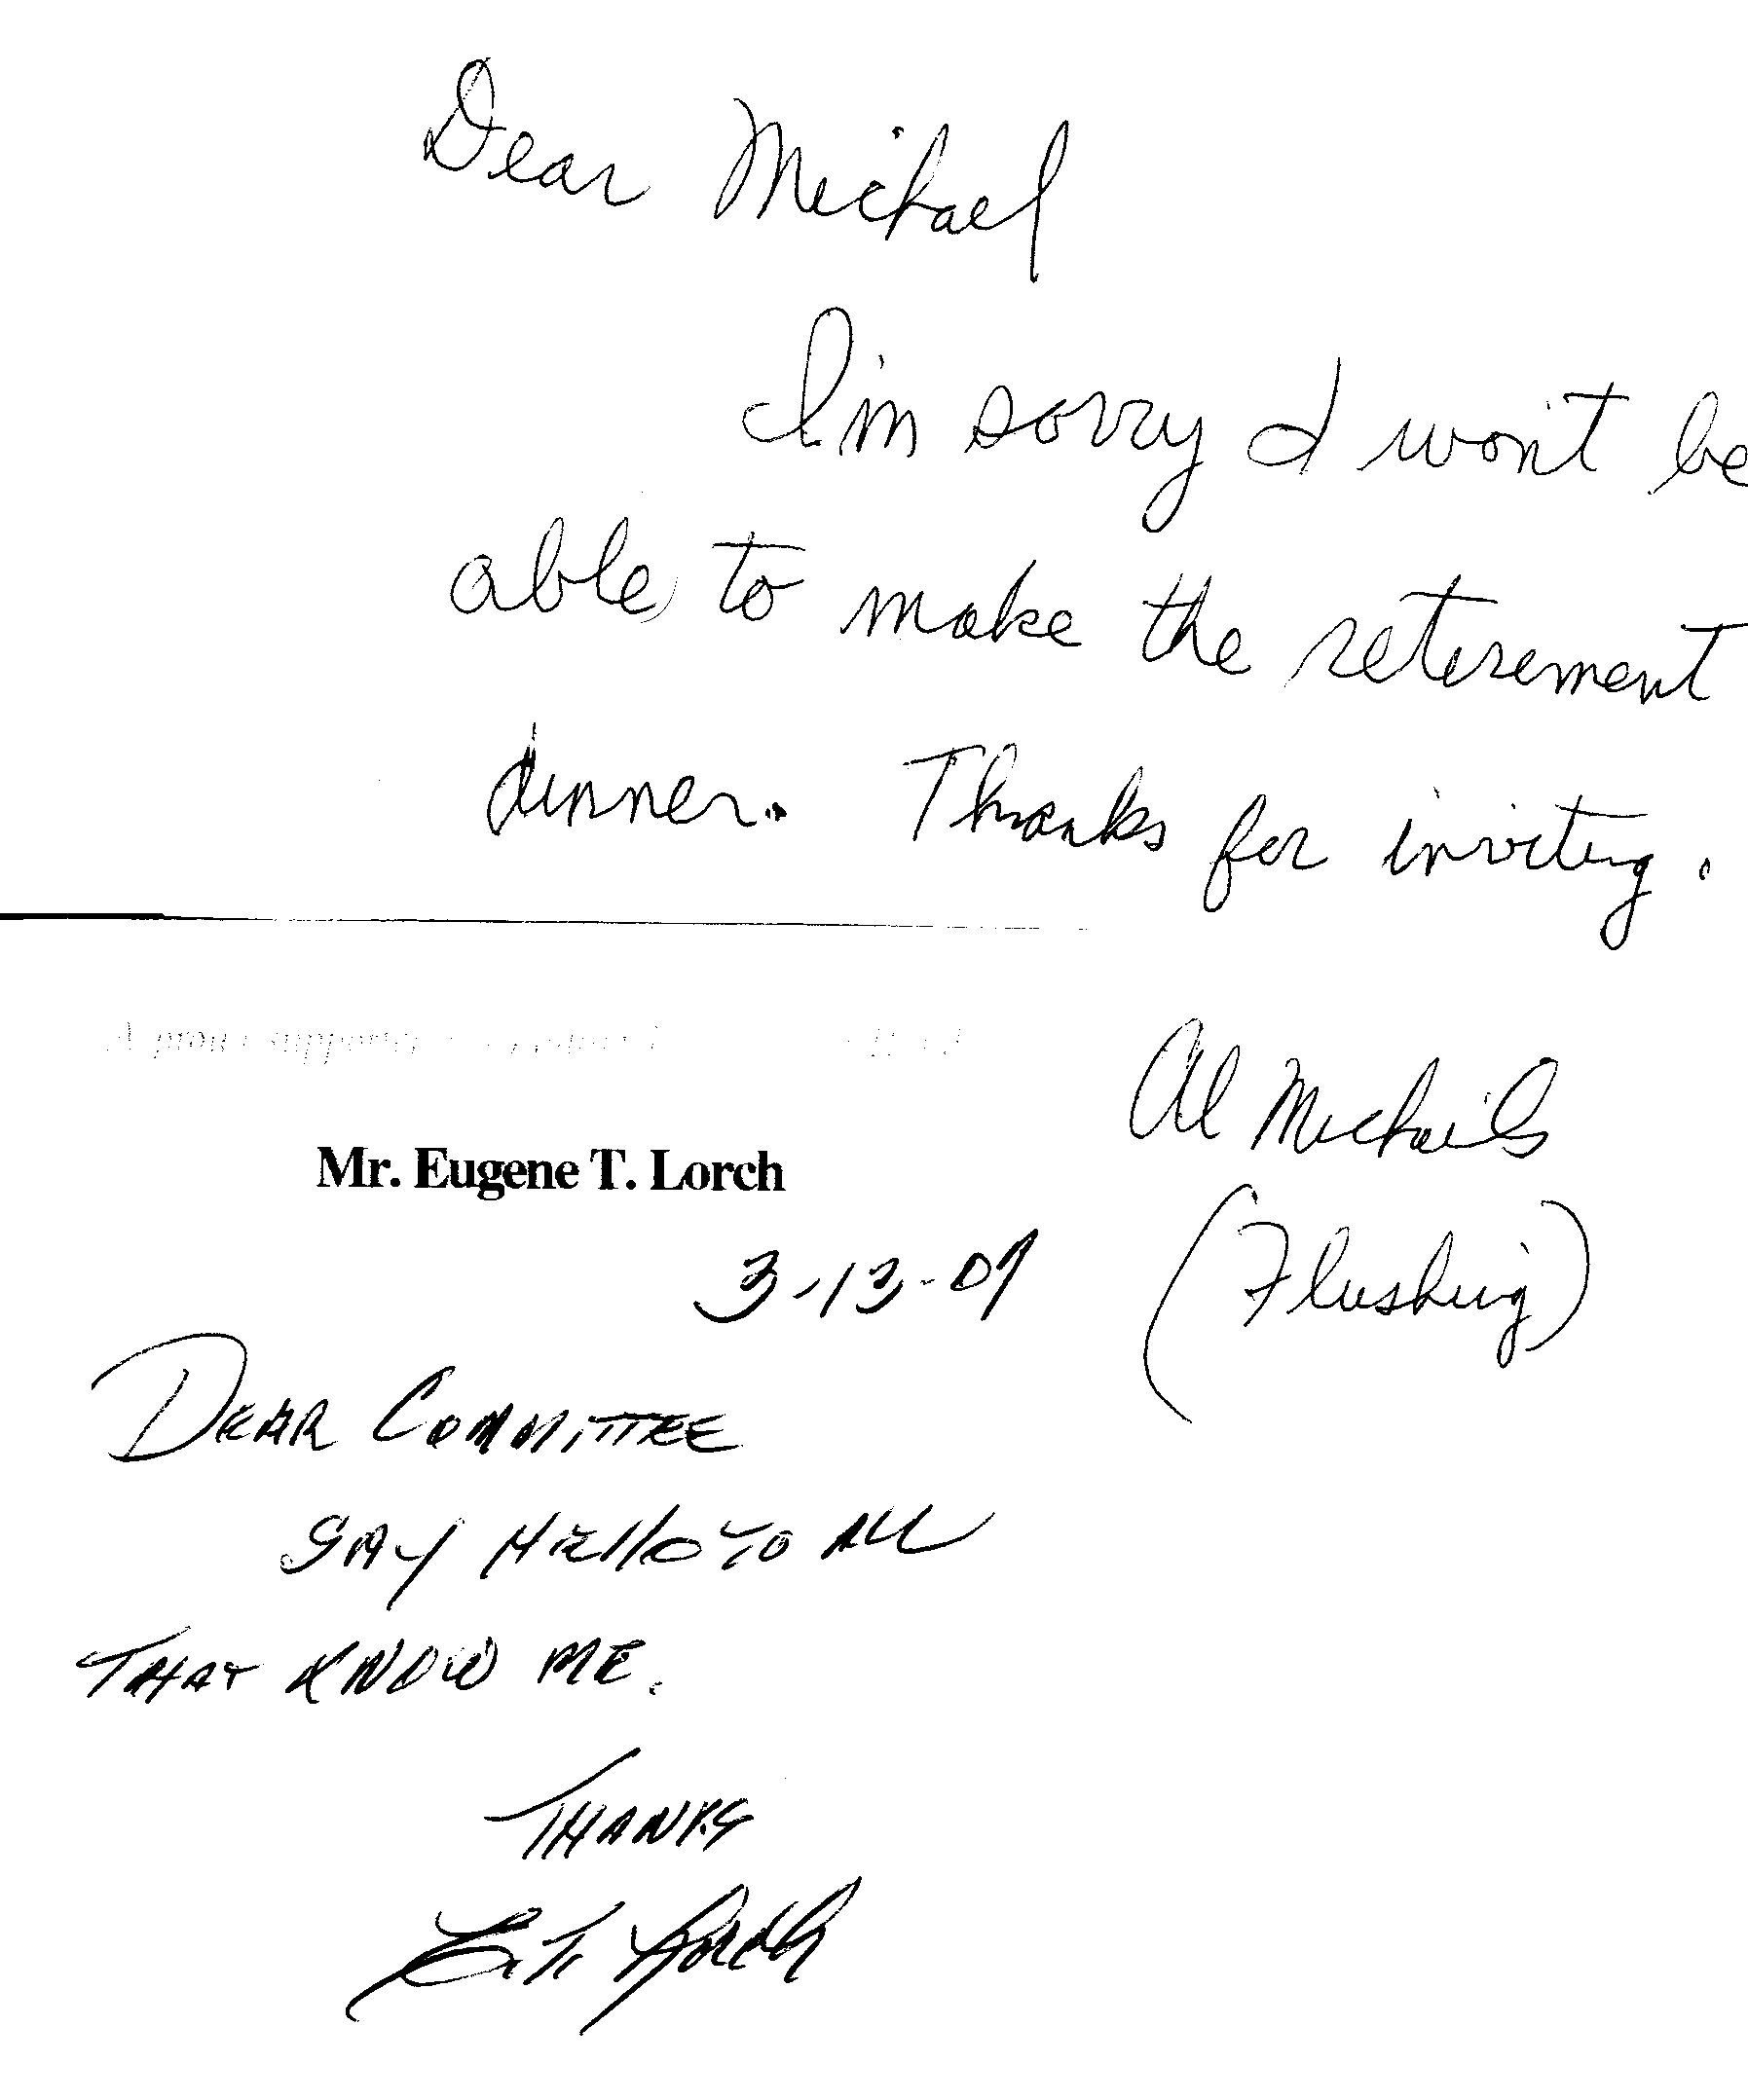 Dear Michael
I'm sorry I won't be
able to make the retirement
dinner. Thanks for inviting.
Al Michaels
(Flushing)
Mr. Eugene T. Lorch
3-13-07
DEAR COMMITTEE
SAY HEllo TO ALL
THAT KNOW ME.
THANKS
E.T. Lorch